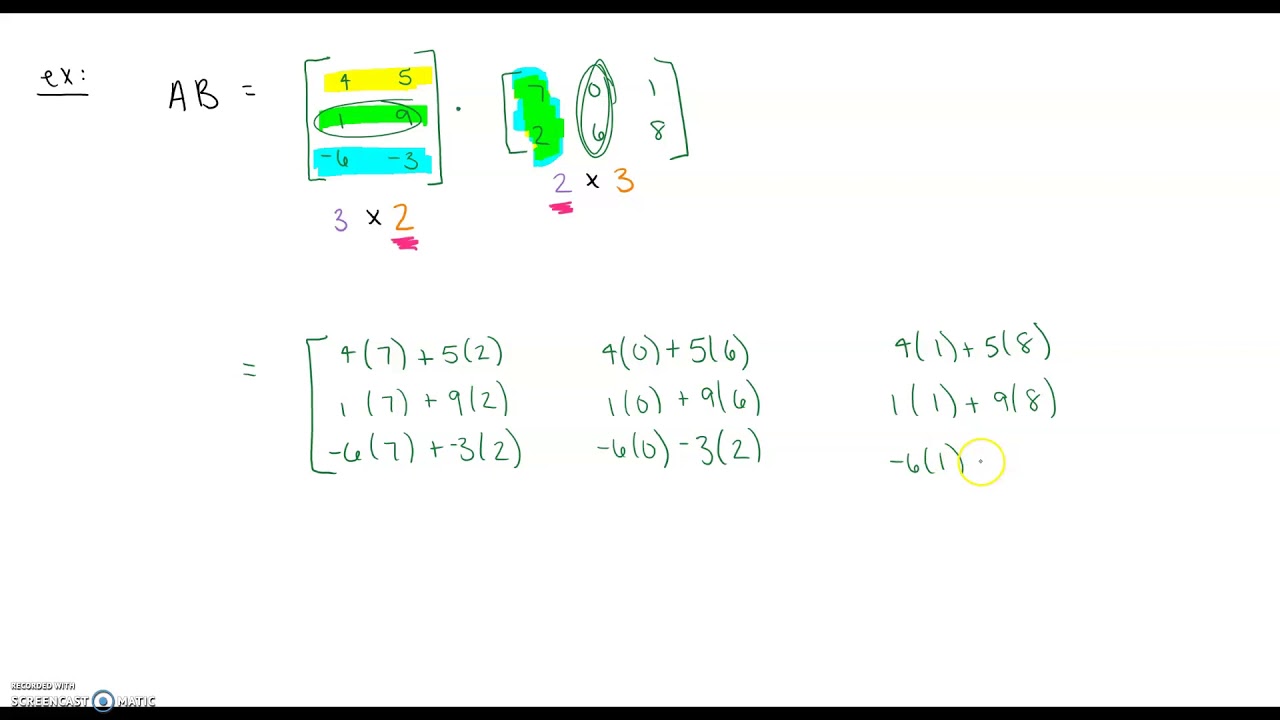 ex: AB = [ 4 5 ] · [ 7 0 1 ]
[ 1 9 ] [ 2 6 8 ]
[ -6 -3 ]
2 x 3
3 x 2
= [ 4(7) + 5(2) 4(0) + 5(6) 4(1) + 5(8)
1(7) + 9(2) 1(0) + 9(6) 1(1) + 9(8)
-6(7) + -3(2) -6(0) -3(2) -6(1)
RECORDED WITH
SCREENCAST MATIC